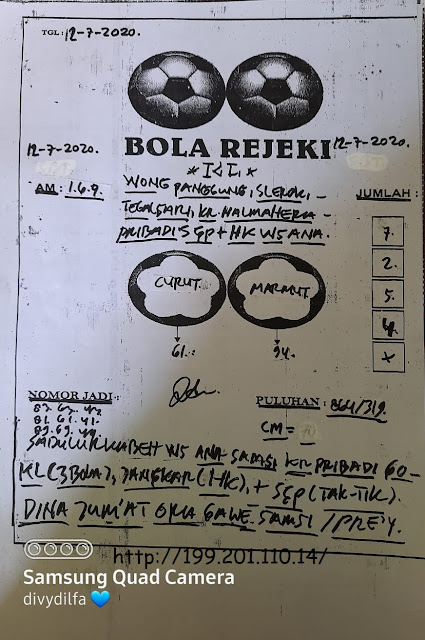 TGL : 12-7-2020.
BOLA REJEKI
12-7-2020.
12-7-2020.
AM : 1.6.9.
WONG PANGGUNG, SLEROK, -
TEGALSARI, KR. HALMAHERA -
PRIBADI SGP + HK WS ANA.
JUMLAH :
7.
2.
5.
4.
CURUT.
MARMUT.
61.
94.
NOMOR JADI :
PULUHAN : 864/319.
81. 61. 41.
CM =
SADULUR KABEH WS ANA SAMSI KR. PRIBADI GO-
KL (3 BOLA), JANGKAR (1 HK), + SGP (TAK-TIK).
DINA JUM'AT ORA GAWE SAMSI / PREY.
http://199.201.110.14/
Samsung Quad Camera
divydilfa 💙